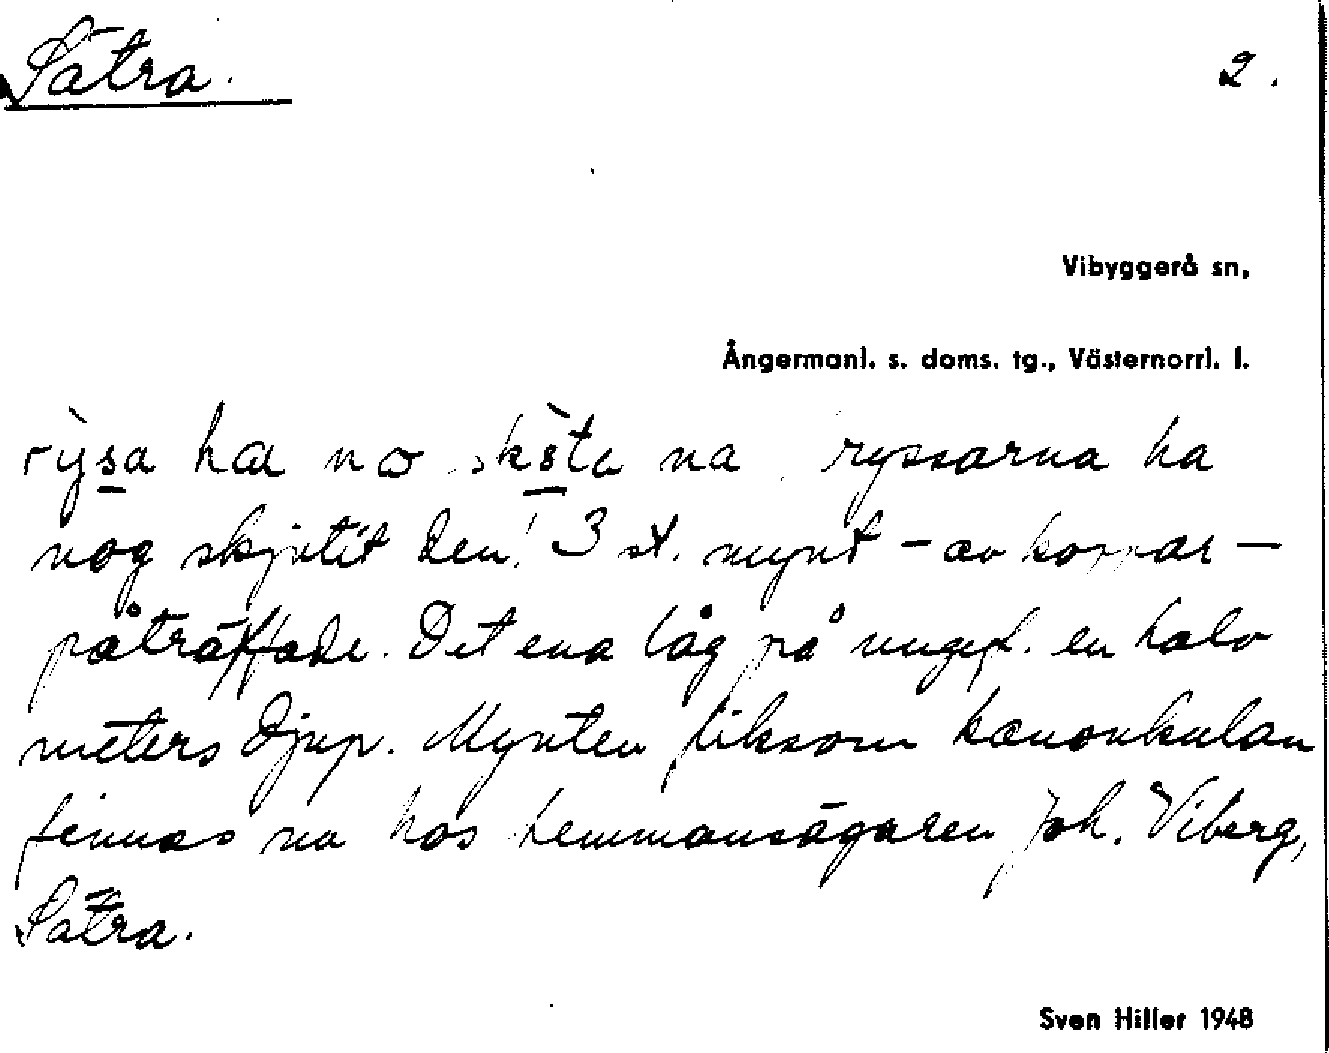 Sätra.
2.
Vibyggerå sn,
Ångermanl. s. doms. tg., Västernorrl. l.
rỳsa ha no na ryssarna ha
nog skjutit den! 3 st. mynt – av koppar –
påträffade. Det ena låg på ungef. en halv
meters djup. Mynten liksom kanonkulan
finnas nu hos hemmansägaren Joh. Viberg,
Sätra.
Sven Hiller 1948